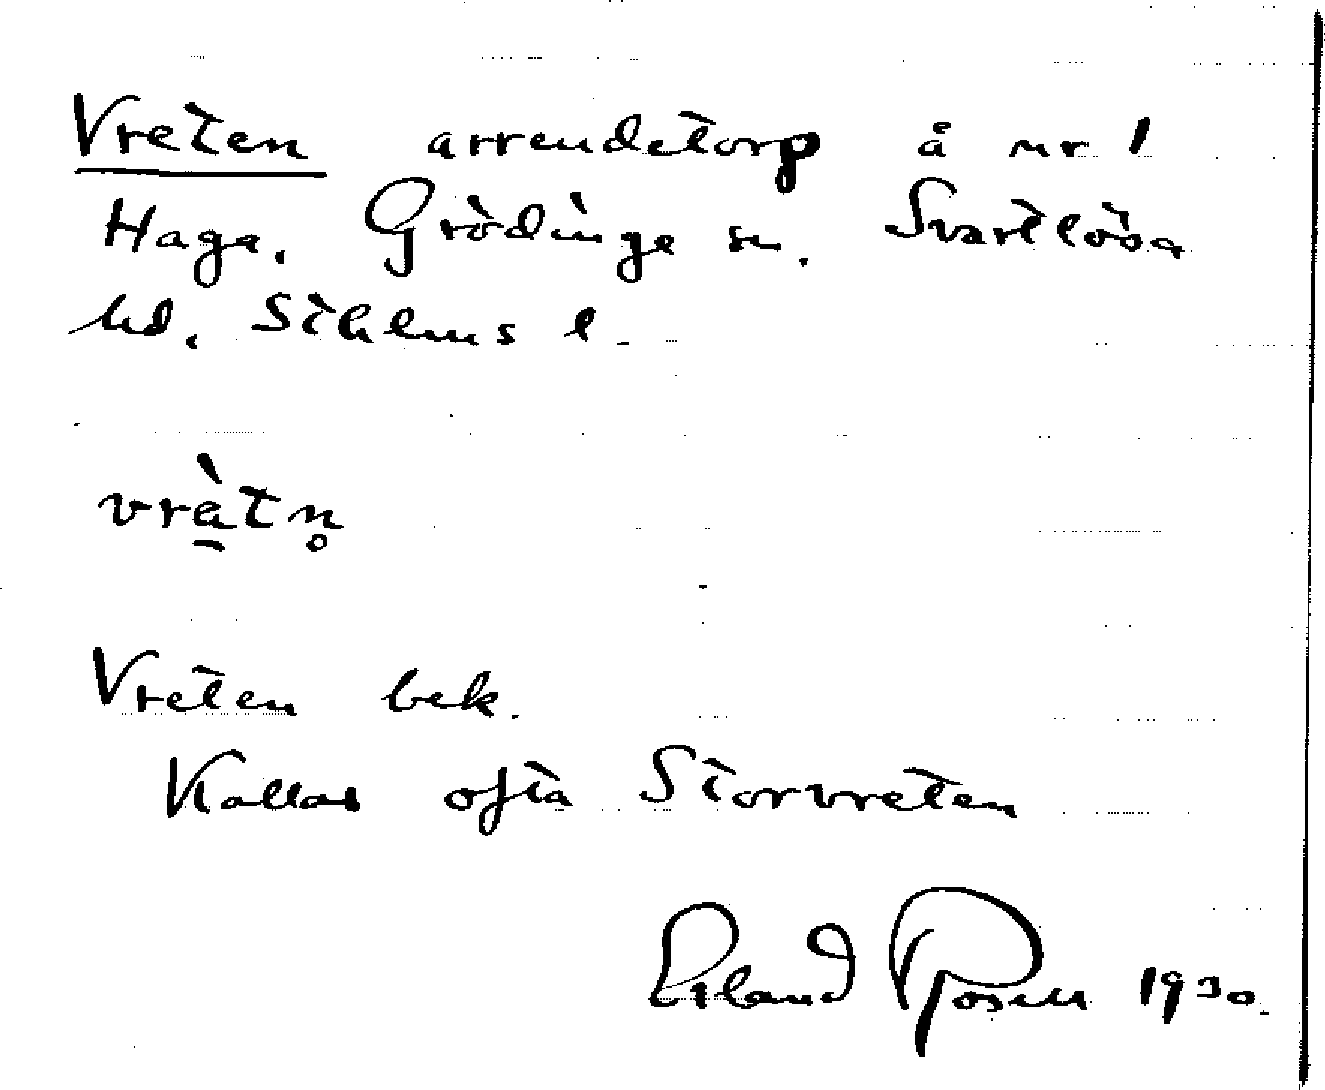 Vreten arrendetorp å nr 1
Haga. Grödinge sn. Svartlösa
hd. Sthlms l.
vrà̱tn̥
Vreten bek.
Kallas ofta Storvreten
Erland Rosell 1930.